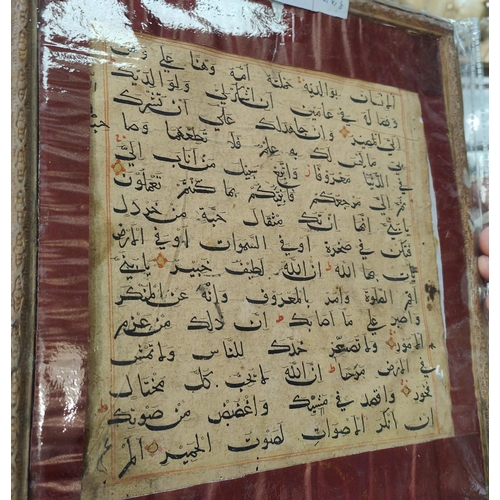 الانسان بوالديه حملته امه وهنا على وهن
وفصاله في عامين ان اشكر لي ولوالديك
الي المصير وان جاهداك على ان تشرك
بي ما ليس لك به علم فلا تطعهما وصا حبهما
في الدنيا معروفا واتبع سبيل من اناب الي
ثم الي مرجعكم فانبئكم بما كنتم تعملون
يا بني انها ان تك مثقال حبة من خردل
فتكن في صخرة او في السموات او في الارض
يات بها الله ان الله لطيف خبير يا بني
اقم الصلوة وامر بالمعروف وانه عن المنكر
واصبر على ما اصابك ان ذلك من عزم
الامور ولا تصعر خدك للناس ولا تمش
في الارض مرحا ان الله لا يحب كل مختال
فخور واقصد في مشيك واغضض من صوتك
ان انكر الاصوات لصوت الحمير الم